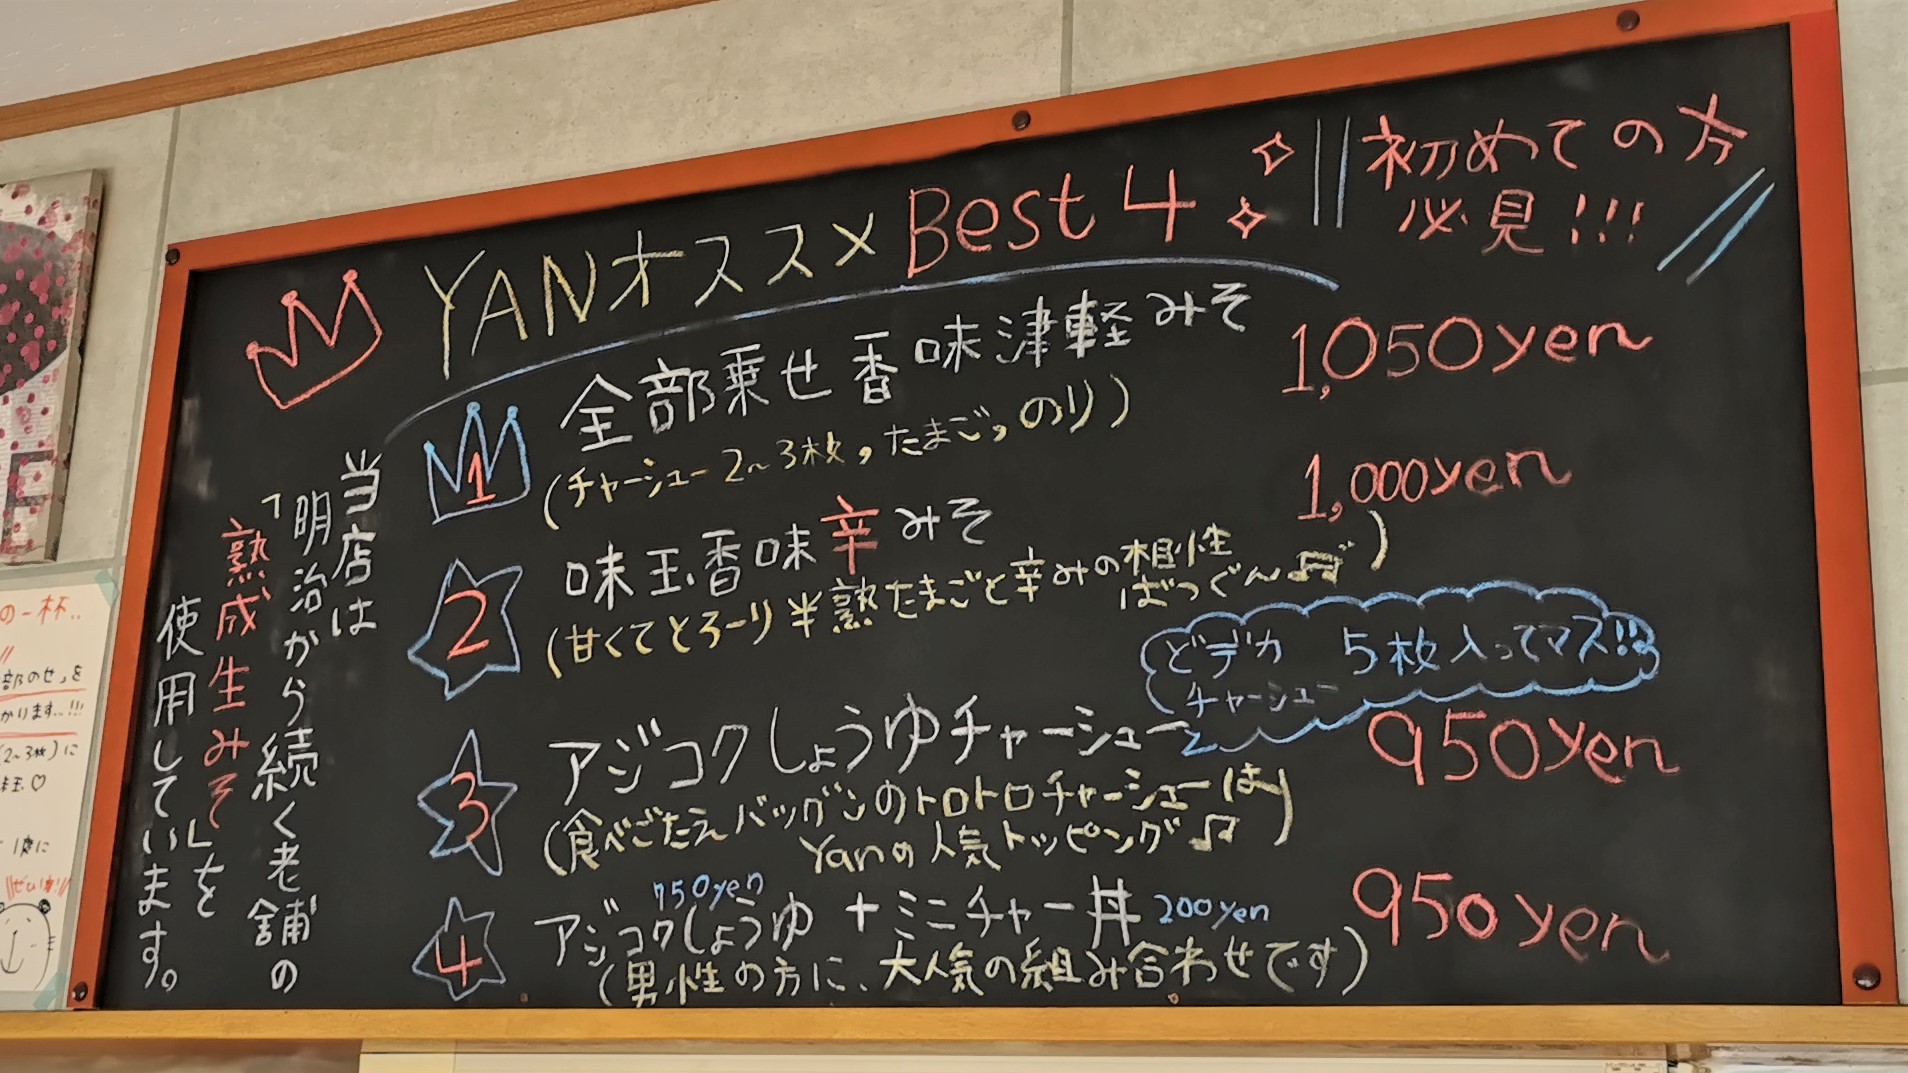 YANオススメ Best 4
初めての方
必見!!!
1
全部乗せ香味津軽みそ 1,050yen
(チャーシュー2~3枚,たまご,のり)
2
味玉香味辛みそ 1,000yen
(甘くてとろーり半熟たまごと辛みの相性
ばつぐん♫)
どデカ
チャーシュー
5枚入ってマス!!
3
アジコクしょうゆチャーシュー 950yen
(食べごたえバツグンのトロトロチャーシューは
Yanの人気トッピング♫)
4
750yen
アジコクしょうゆ+ミニチャー丼 200yen 950yen
(男性の方に、大人気の組み合わせです)
当店は
「明治から続く老舗の
熟成生みそ」を
使用しています。
の一杯..
部のせ」を
かります..!!!
(2~3枚)に
味玉♡
1度に